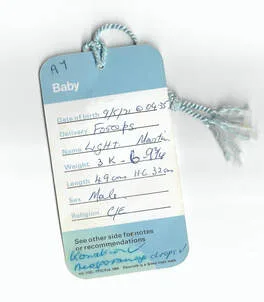 A Y
Baby
Date of birth 9/5/71 @ 04.35
Delivery Forceps
Name LIGHT Martin
Weight 3 K - 6-9¾
Length 49cm HC 32cm
Sex Male
Religion C/E
See other side for notes
or recommendations
Konakion ✓
drops ✓